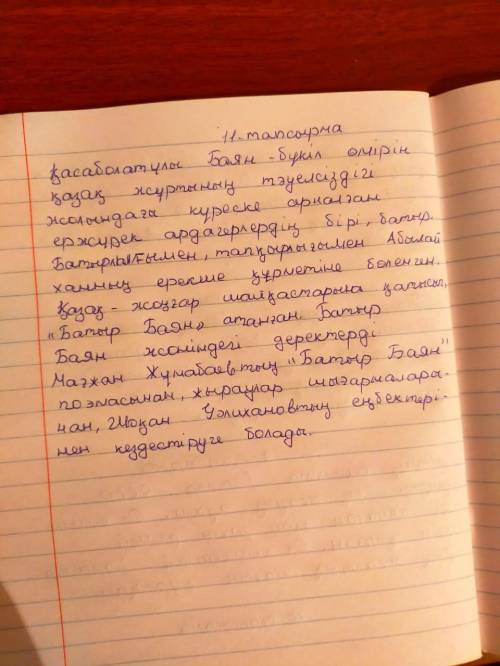 11-тапсырма
Қасаболатұлы Баян - бүкіл өмірін
қазақ жұртының тәуелсіздігі
жолындағы күреске арнаған
ержүрек ардагерлердің бірі, батыр.
Батырлығымен, тапқырлығымен Абылай
ханның ерекше құрметіне бөленген.
Қазақ - жоңғар шайқастарына қатысып,
"Батыр Баян" атанған. Батыр
Баян жөніндегі деректерді
Мағжан Жұмабаевтың "Батыр Баян"
поэмасынан, жыраулар шығармалары-
нан, Шоқан Уәлихановтың еңбектері-
нен кездестіруге болады.